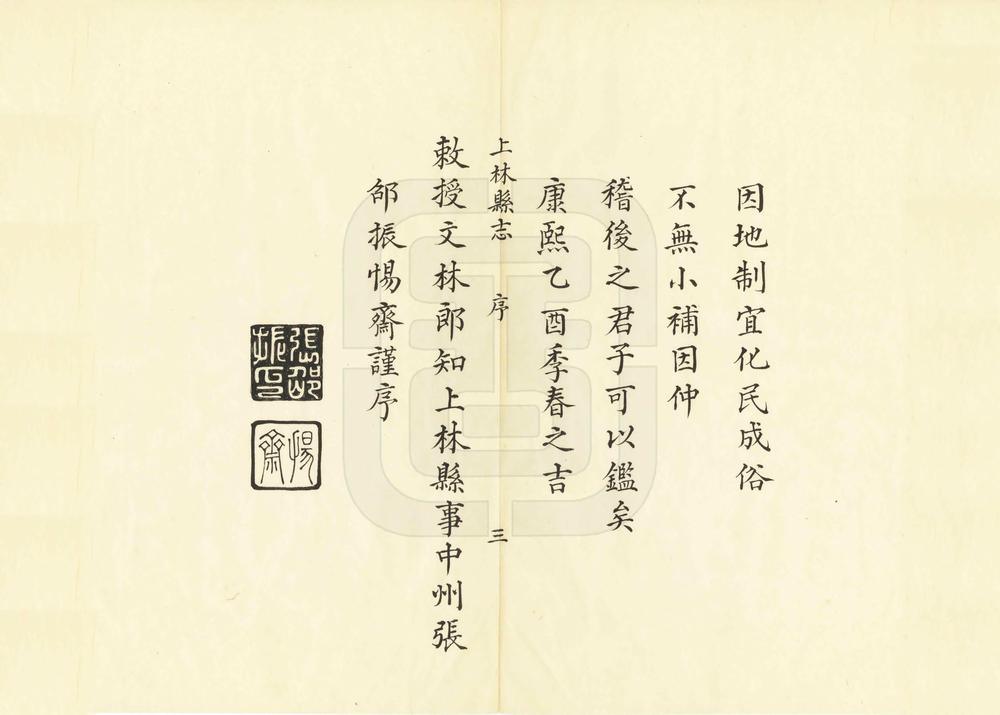 因地制宜化民成俗
不無小補因仲
稽後之君子可以鑑矣
康熙乙酉季春之吉
上林縣志 序 三
敕授文林郎知上林縣事中州張
邵振惕齋謹序
張邵振印
惕齋